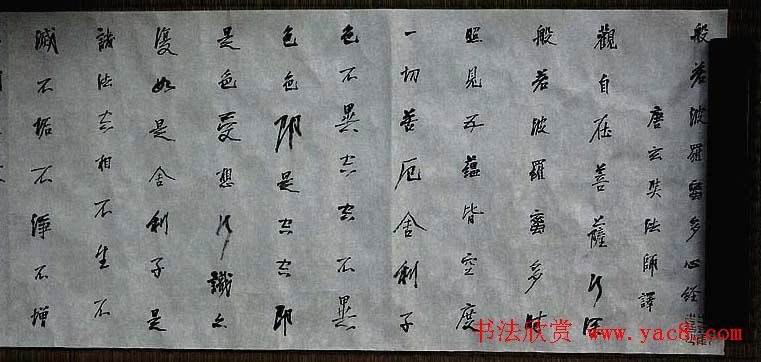 般若波羅蜜多心經
唐玄奘法師譯
觀自在菩薩行深
般若波羅蜜多時
照見五蘊皆空度
一切苦厄舍利子
色不異空空不異
色色即是空空即
是色受想行識亦
復如是舍利子是
諸法空相不生不
滅不垢不淨不增
书法欣赏 www.yac8.com